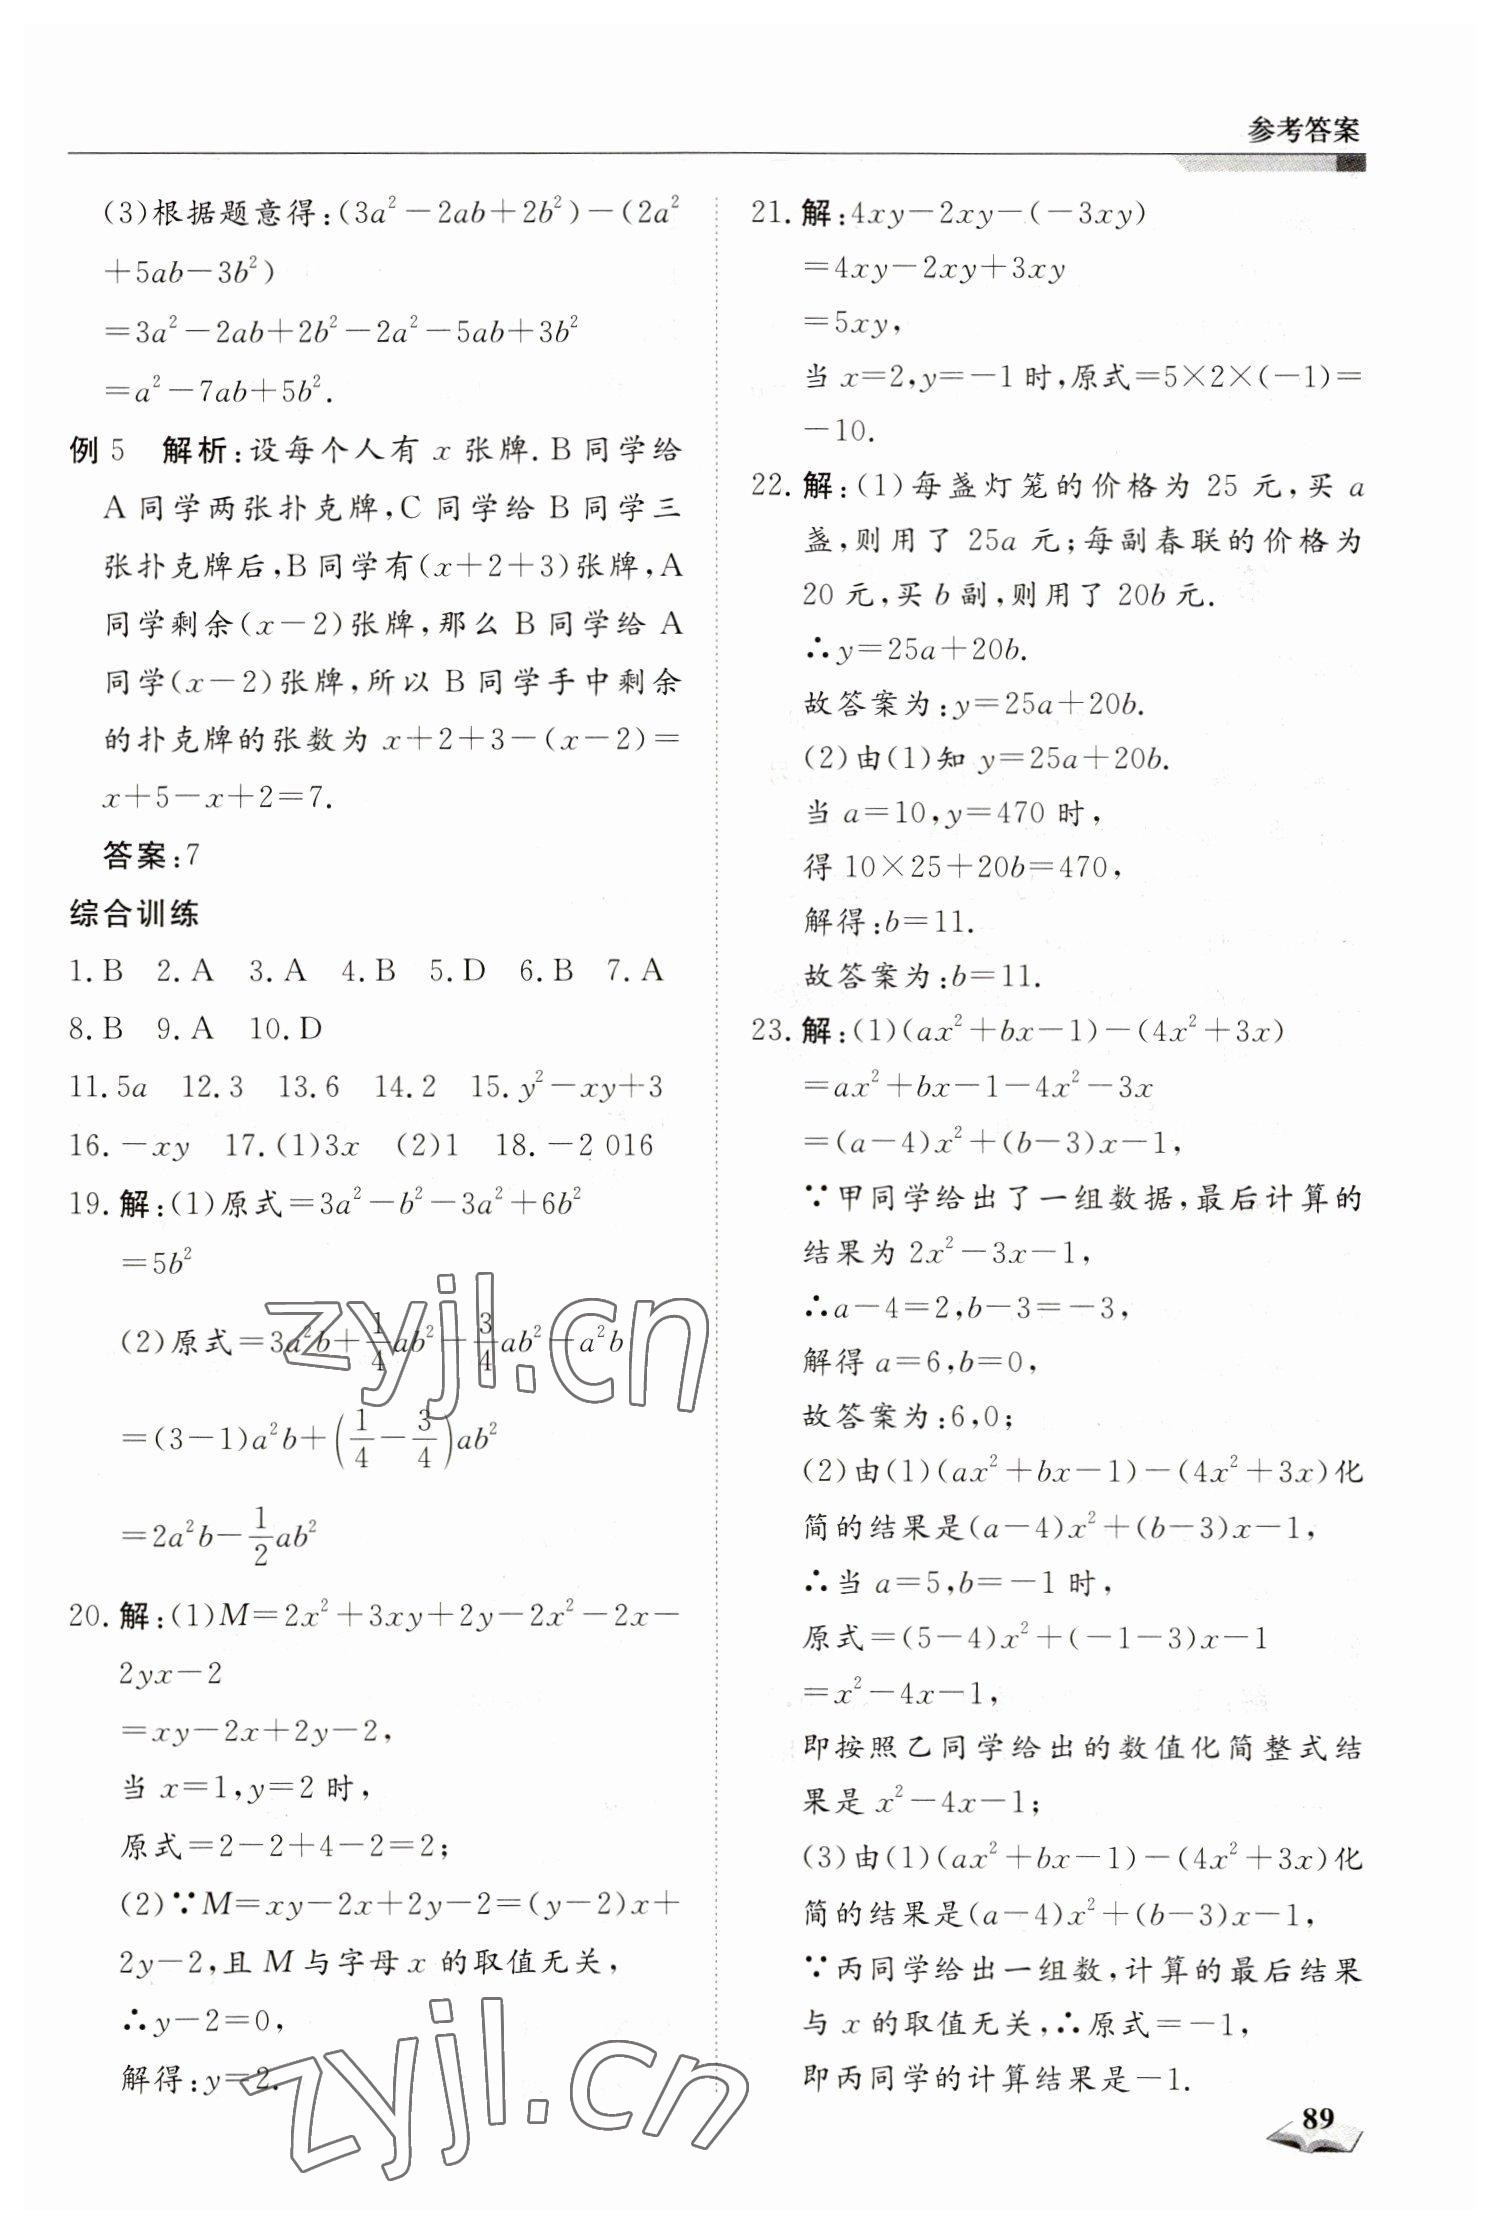 参考答案
(3)根据题意得:(3a²-2ab+2b²)-(2a²
+5ab-3b²)
=3a²-2ab+2b²-2a²-5ab+3b²
=a²-7ab+5b².
例5 解析:设每个人有 x 张牌.B同学给
A同学两张扑克牌,C同学给B同学三
张扑克牌后,B同学有(x+2+3)张牌,A
同学剩余(x-2)张牌,那么B同学给A
同学(x-2)张牌,所以B同学手中剩余
的扑克牌的张数为 x+2+3-(x-2)=
x+5-x+2=7.
答案:7
综合训练
1.B 2.A 3.A 4.B 5.D 6.B 7.A
8.B 9.A 10.D
11.5a 12.3 13.6 14.2 15.y²-xy+3
16.-xy 17.(1)3x (2)1 18.-2 016
19.解:(1)原式=3a²-b²-3a²+6b²
=5b²
(2)原式=3a²b+1/4ab²-3/4ab²-a²b
=(3-1)a²b+(1/4-3/4)ab²
=2a²b-1/2ab²
20.解:(1)M=2x²+3xy+2y-2x²-2x-
2yx-2
=xy-2x+2y-2,
当 x=1,y=2 时,
原式=2-2+4-2=2;
(2)∵M=xy-2x+2y-2=(y-2)x+
2y-2,且 M 与字母 x 的取值无关,
∴y-2=0,
解得:y=2.
21.解:4xy-2xy-(-3xy)
=4xy-2xy+3xy
=5xy,
当 x=2,y=-1 时,原式=5×2×(-1)=
-10.
22.解:(1)每盏灯笼的价格为 25 元,买 a
盏,则用了 25a 元;每副春联的价格为
20 元,买 b 副,则用了 20b 元.
∴y=25a+20b.
故答案为:y=25a+20b.
(2)由(1)知 y=25a+20b.
当 a=10,y=470 时,
得 10×25+20b=470,
解得:b=11.
故答案为:b=11.
23.解:(1)(ax²+bx-1)-(4x²+3x)
=ax²+bx-1-4x²-3x
=(a-4)x²+(b-3)x-1,
∵甲同学给出了一组数据,最后计算的
结果为 2x²-3x-1,
∴a-4=2,b-3=-3,
解得 a=6,b=0,
故答案为:6,0;
(2)由(1)(ax²+bx-1)-(4x²+3x)化
简的结果是(a-4)x²+(b-3)x-1,
∴当 a=5,b=-1 时,
原式=(5-4)x²+(-1-3)x-1
=x²-4x-1,
即按照乙同学给出的数值化简整式结
果是 x²-4x-1;
(3)由(1)(ax²+bx-1)-(4x²+3x)化
简的结果是(a-4)x²+(b-3)x-1,
∵丙同学给出一组数,计算的最后结果
与 x 的取值无关,∴原式=-1,
即丙同学的计算结果是-1.
89
zyjl.cn
zyjl.cn